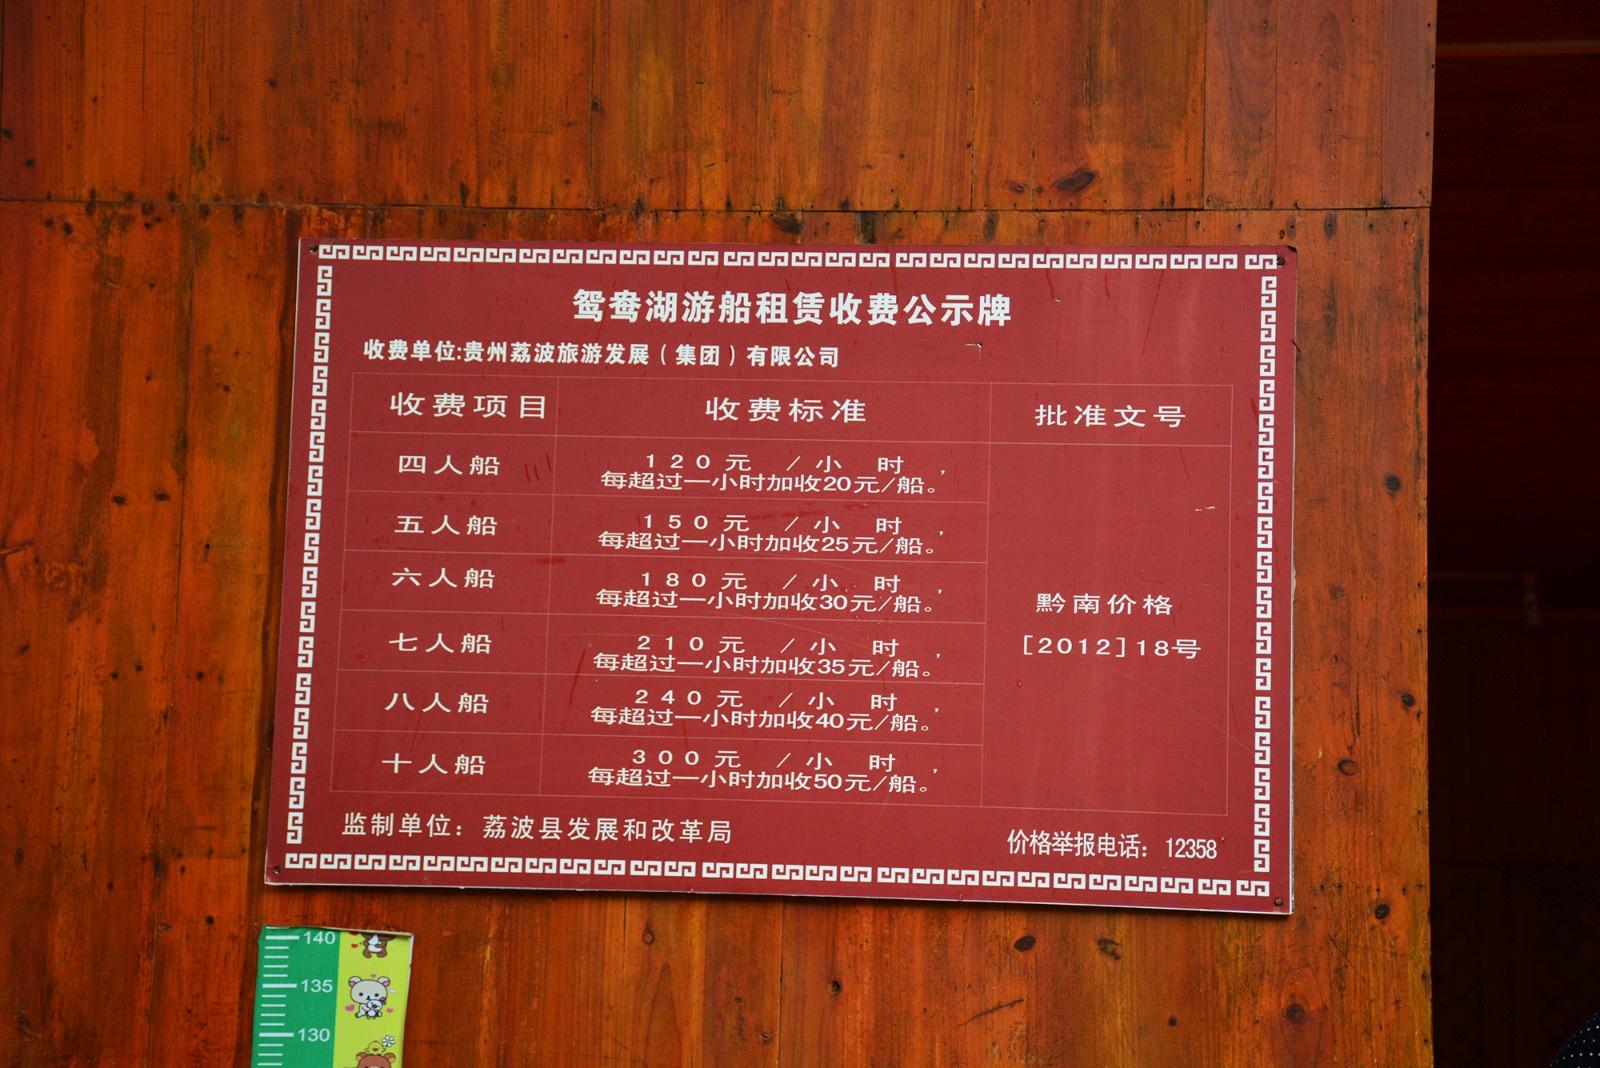 鸳鸯湖游船租赁收费公示牌
收费单位:贵州荔波旅游发展（集团）有限公司
收费项目 收费标准 批准文号
四人船 120元 / 小 时 ，
每超过一小时加收20元/船。
五人船 150元 / 小 时 ，
每超过一小时加收25元/船。
六人船 180元 / 小 时 ，
每超过一小时加收30元/船。
七人船 210元 / 小 时 ，
每超过一小时加收35元/船。
八人船 240元 / 小 时 ，
每超过一小时加收40元/船。
十人船 300元 / 小 时 ，
每超过一小时加收50元/船。
黔南价格
[2012]18号
监制单位：荔波县发展和改革局
价格举报电话：12358
140
135
130